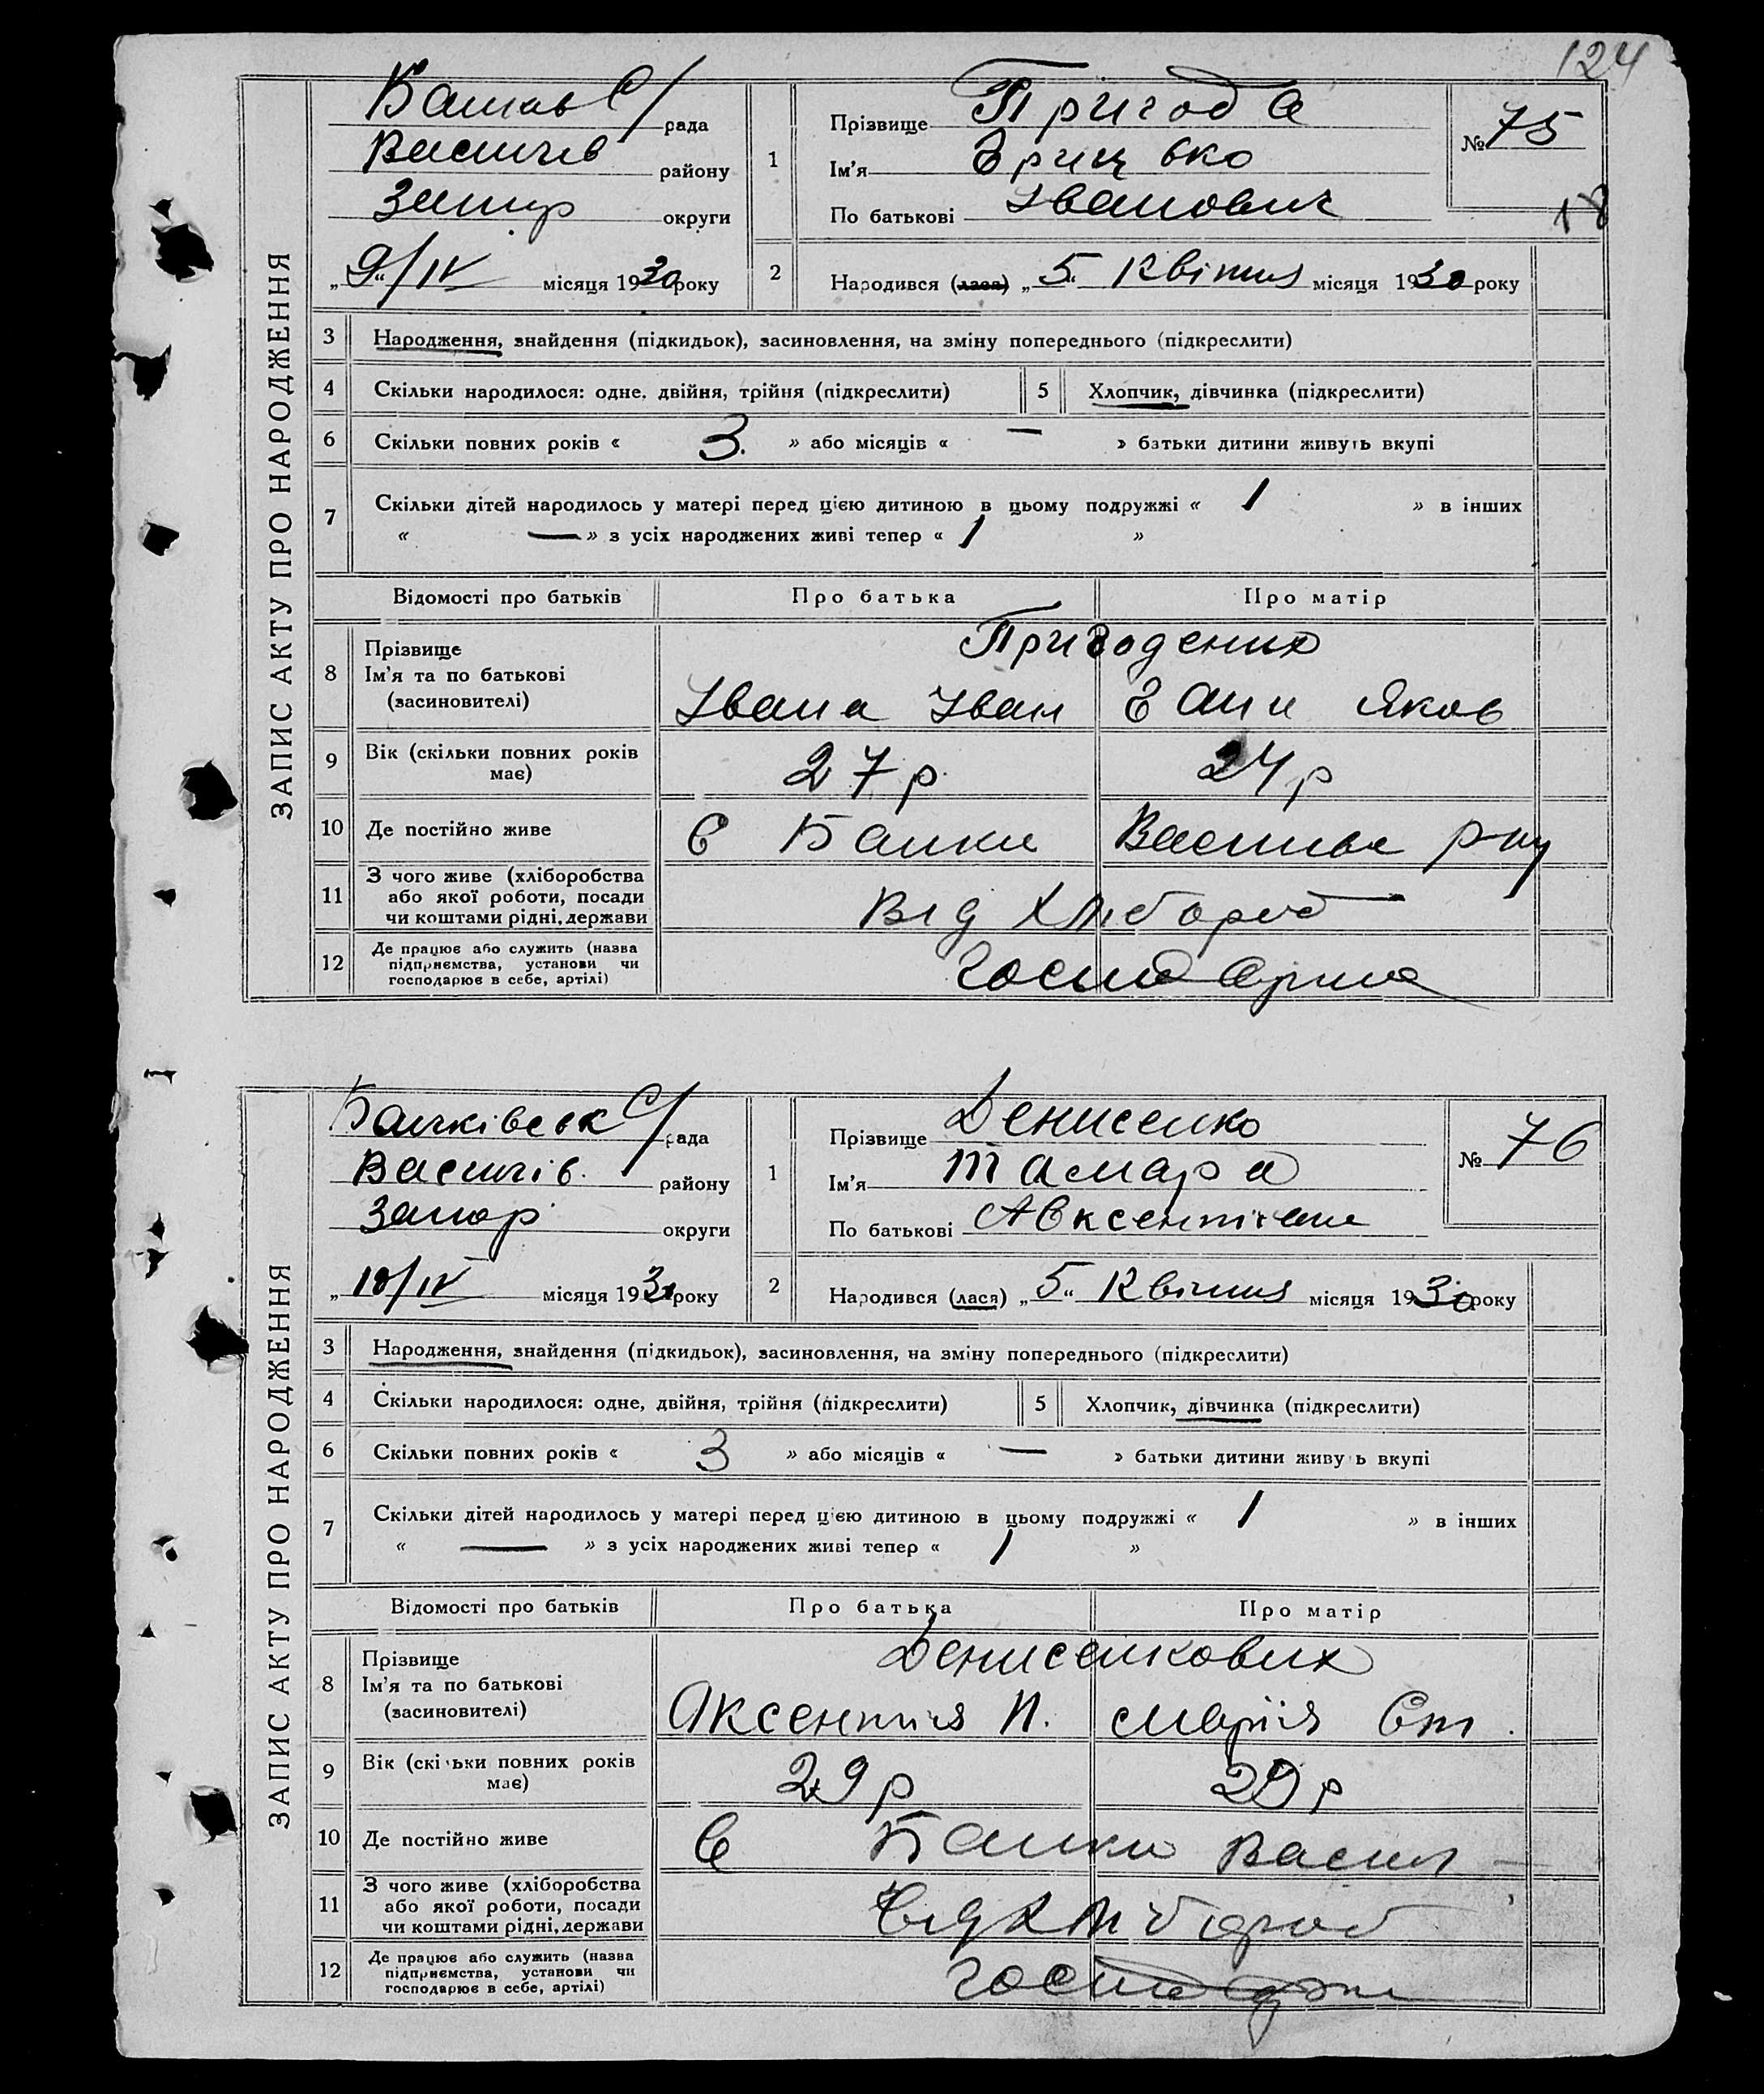 124
ЗАПИС АКТУ ПРО НАРОДЖЕННЯ
С/рада
Василів району
Запор округи
„9“/IV місяця 1930 року
1 Прізвище Пригода
Ім'я
По батькові Іванович
№ 75
18
2 Народився (лася) „5“ Квітня місяця 1930 року
3 Народження, знайдення (підкидьок), засиновлення, на зміну попереднього (підкреслити)
4 Скільки народилося: одне, двійня, трійня (підкреслити) 5 Хлопчик, дівчинка (підкреслити)
6 Скільки повних років « 3. » або місяців « — » батьки дитини живуть вкупі
7 Скільки дітей народилось у матері перед цією дитиною в цьому подружжі « 1 » в інших
« — » з усіх народжених живі тепер « 1 »
Відомості про батьків Про батька Про матір
8 Прізвище
Ім'я та по батькові
(засновителі)
Івана Іван Яков
9 Вік (скільки повних років
має)
27 р. 24 р
10 Де постійно живе С Балки Василів р-ну
11 З чого живе (хліборобства
або якої роботи, посади
чи коштами рідні, держави
Від Хлібороб
12 Де працює або служить (назва
підприємства, установи чи
господарює в себе, артілі)
ЗАПИС АКТУ ПРО НАРОДЖЕННЯ
Балківськ С/рада
Василів. району
Запор округи
„10/IV місяця 1930 року
1 Прізвище Денисенко
Ім'я Тамара
По батькові
№ 76
2 Народився (лася) „5“ Квітня місяця 1930 року
3 Народження, знайдення (підкидьок), засиновлення, на зміну попереднього (підкреслити)
4 Скільки народилося: одне, двійня, трійня (підкреслити) 5 Хлопчик, дівчинка (підкреслити)
6 Скільки повних років « 3 » або місяців « — » батьки дитини живуть вкупі
7 Скільки дітей народилось у матері перед цією дитиною в цьому подружжі « 1 » в інших
« — » з усіх народжених живі тепер « 1 »
Відомості про батьків Про батька Про матір
8 Прізвище
Ім'я та по батькові
(засиновителі)
Денисенкових
Аксентия П. Марія Ст.
9 Вік (скільки повних років
має)
29 р 29 р
10 Де постійно живе С Балки Васил
11 З чого живе (хліборобства
або якої роботи, посади
чи коштами рідні, держави
Від Хлібороб
12 Де працює або служить (назва
підприємства, установи чи
господарює в себе, артілі)